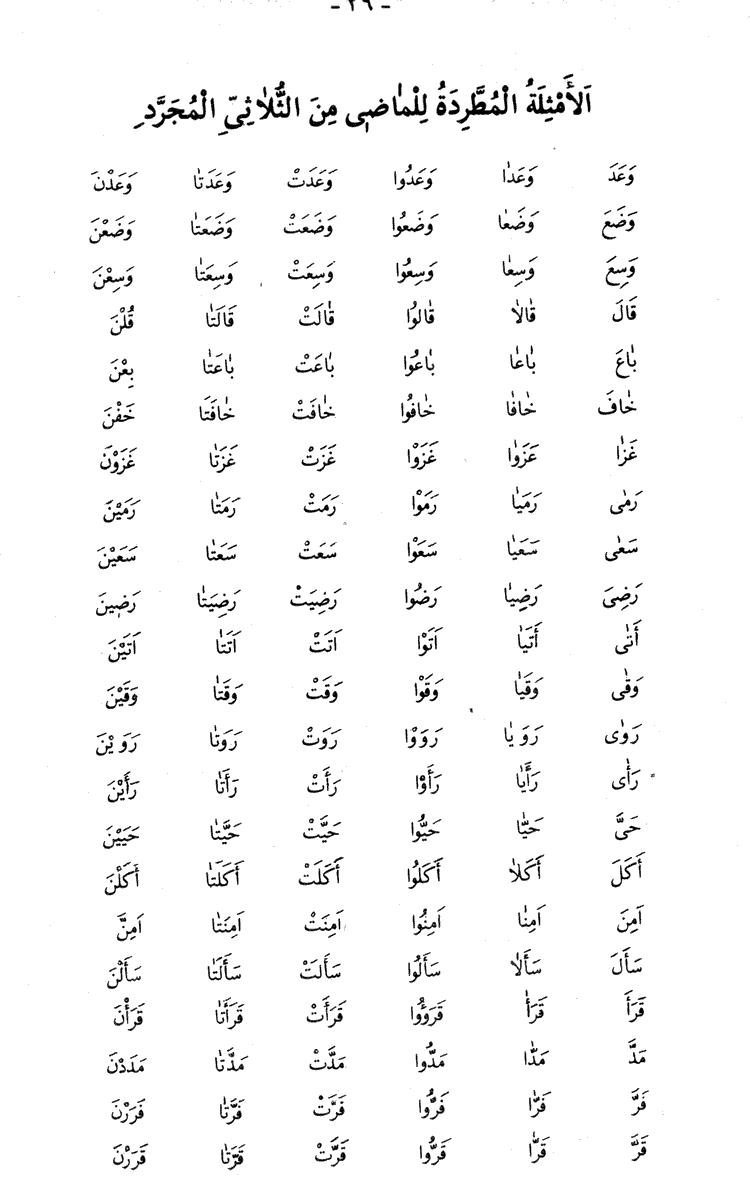 - ٢٩ -
اَلأَمْثِلَةُ الْمُطَّرِدَةُ لِلْمٰاضِى مِنَ الثُّلاٰثِىِّ الْمُجَرَّدِ
وَعَدَ وَعَدٰا وَعَدُوا وَعَدَتْ وَعَدَتٰا وَعَدْنَ
وَضَعَ وَضَعٰا وَضَعُوا وَضَعَتْ وَضَعَتٰا وَضَعْنَ
وَسِعَ وَسِعٰا وَسِعُوا وَسِعَتْ وَسِعَتٰا وَسِعْنَ
قٰالَ قٰالاٰ قٰالُوا قٰالَتْ قٰالَتٰا قُلْنَ
بٰاعَ بٰاعٰا بٰاعُوا بٰاعَتْ بٰاعَتٰا بِعْنَ
خٰافَ خٰافٰا خٰافُوا خٰافَتْ خٰافَتٰا خَفْنَ
غَزٰا غَزَوٰا غَزَوْا غَزَتْ غَزَتٰا غَزَوْنَ
رَمٰى رَمَيٰا رَمَوْا رَمَتْ رَمَتٰا رَمَيْنَ
سَعٰى سَعَيٰا سَعَوْا سَعَتْ سَعَتٰا سَعَيْنَ
رَضِىَ رَضِيٰا رَضُوا رَضِيَتْ رَضِيَتٰا رَضِينَ
أَتٰى أَتَيٰا اَتَوْا اَتَتْ اَتَتٰا اَتَيْنَ
وَقٰى وَقَيٰا وَقَوْا وَقَتْ وَقَتٰا وَقَيْنَ
رَوٰى رَوَيٰا رَوَوْا رَوَتْ رَوَتٰا رَوَيْنَ
رَأٰى رَأَيٰا رَأَوْا رَأَتْ رَأَتٰا رَأَيْنَ
حَىَّ حَيّٰا حَيُّوا حَيَّتْ حَيَّتٰا حَيَيْنَ
أَكَلَ أَكَلاٰ أَكَلُوا أَكَلَتْ أَكَلَتٰا أَكَلْنَ
اَمِنَ اَمِنٰا اَمِنُوا اَمِنَتْ اَمِنَتٰا اَمِنَّ
سَأَلَ سَأَلاٰ سَأَلُوا سَأَلَتْ سَأَلَتٰا سَأَلْنَ
قَرَأَ قَرَأٰ قَرَؤُوا قَرَأَتْ قَرَأَتٰا قَرَأْنَ
مَدَّ مَدّٰا مَدُّوا مَدَّتْ مَدَّتٰا مَدَدْنَ
فَرَّ فَرّٰا فَرُّوا فَرَّتْ فَرَّتٰا فَرَرْنَ
قَرَّ قَرّٰا قَرُّوا قَرَّتْ قَرَّتٰا قَرَرْنَ